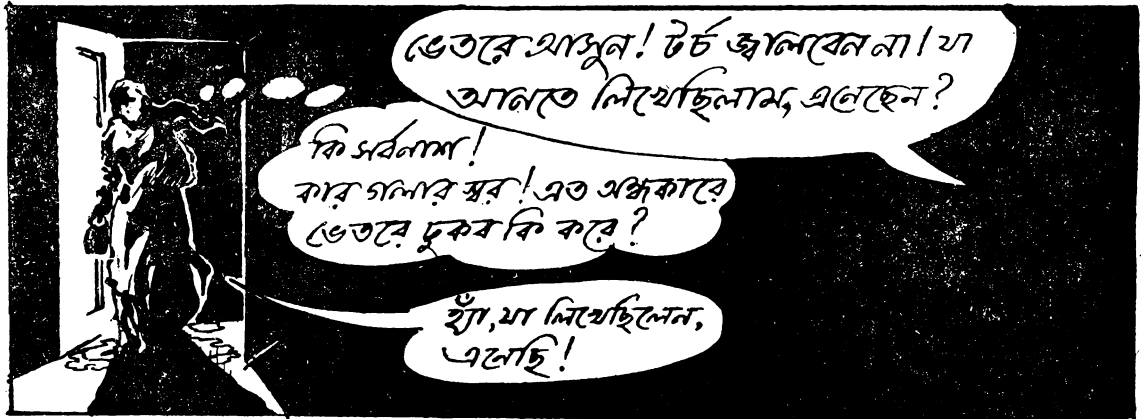 ভেতরে আসুন! টর্চ জ্বালবেন না! যা
আনতে লিখেছিলাম, এনেছেন?
কি সর্বনাশ!
কার গলার স্বর! এত অন্ধকারে
ভেতরে ঢুকব কি করে?
হ্যাঁ, যা লিখেছিলেন,
এনেছি!